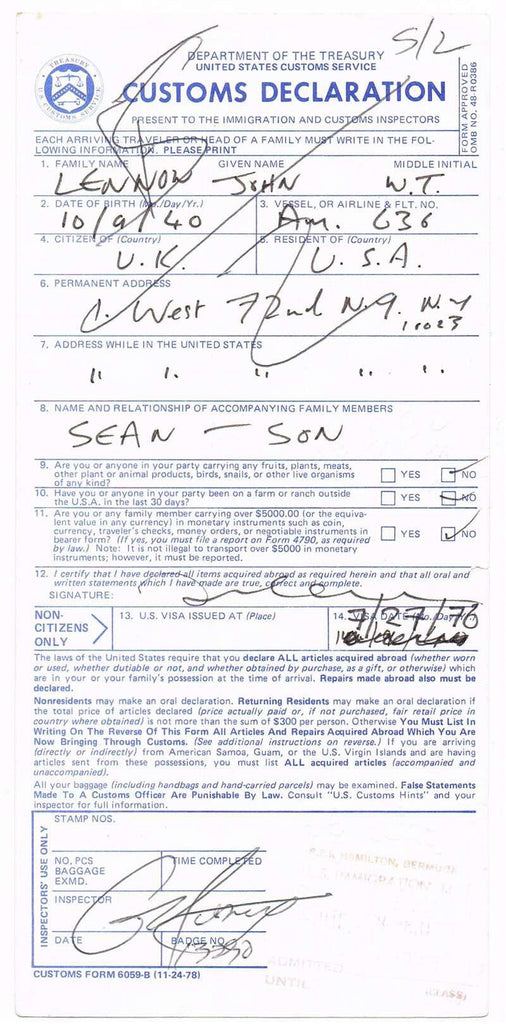 5/2
DEPARTMENT OF THE TREASURY
UNITED STATES CUSTOMS SERVICE
CUSTOMS DECLARATION
PRESENT TO THE IMMIGRATION AND CUSTOMS INSPECTORS
FORM APPROVED
OMB NO. 48-R0386
TREASURY
U.S. CUSTOMS SERVICE
EACH ARRIVING TRAVELER OR HEAD OF A FAMILY MUST WRITE IN THE FOL-
LOWING INFORMATION. PLEASE PRINT
1. FAMILY NAME GIVEN NAME MIDDLE INITIAL
LENNON JOHN W.T.
2. DATE OF BIRTH (Mo./Day/Yr.) 3. VESSEL, OR AIRLINE & FLT. NO.
10/9/40 Am. 636
4. CITIZEN OF (Country) 5. RESIDENT OF (Country)
U.K. U.S.A.
6. PERMANENT ADDRESS
1. West 72nd N.Y. N.Y
10023
7. ADDRESS WHILE IN THE UNITED STATES
" " " " "
8. NAME AND RELATIONSHIP OF ACCOMPANYING FAMILY MEMBERS
SEAN — SON
9. Are you or anyone in your party carrying any fruits, plants, meats,
other plant or animal products, birds, snails, or other live organisms
of any kind? YES NO
10. Have you or anyone in your party been on a farm or ranch outside
the U.S.A. in the last 30 days? YES NO
11. Are you or any family member carrying over $5000.00 (or the equiva-
lent value in any currency) in monetary instruments such as coin,
currency, traveler's checks, money orders, or negotiable instruments in
bearer form? (If yes, you must file a report on Form 4790, as required
by law.) Note: It is not illegal to transport over $5000 in monetary
instruments; however, it must be reported. YES NO
12. I certify that I have declared all items acquired abroad as required herein and that all oral and
written statements which I have made are true, correct and complete.
SIGNATURE:
NON-
CITIZENS
ONLY
13. U.S. VISA ISSUED AT (Place) 14. VISA DATE (Mo./Day/Yr.)
7/27/76
The laws of the United States require that you declare ALL articles acquired abroad (whether worn
or used, whether dutiable or not, and whether obtained by purchase, as a gift, or otherwise) which
are in your or your family's possession at the time of arrival. Repairs made abroad also must be
declared.
Nonresidents may make an oral declaration. Returning Residents may make an oral declaration if
the total price of articles declared (price actually paid or, if not purchased, fair retail price in
country where obtained) is not more than the sum of $300 per person. Otherwise You Must List In
Writing On The Reverse Of This Form All Articles And Repairs Acquired Abroad Which You Are
Now Bringing Through Customs. (See additional instructions on reverse.) If you are arriving
(directly or indirectly) from American Samoa, Guam, or the U.S. Virgin Islands and are having
articles sent from these possessions, you must list ALL acquired articles (accompanied and
unaccompanied).
All your baggage (including handbags and hand-carried parcels) may be examined. False Statements
Made To A Customs Officer Are Punishable By Law. Consult "U.S. Customs Hints" and your
inspector for full information.
INSPECTORS' USE ONLY
STAMP NOS.
NO. PCS
BAGGAGE
EXMD.
TIME COMPLETED
INSPECTOR
DATE BADGE NO.
HAMILTON, BERMUDA
U.S. IMMIGRATION
ADMITTED
UNTIL
(CLASS)
CUSTOMS FORM 6059-B (11-24-78)